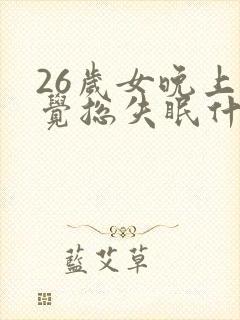 26歲女晚上
覺總失眠什
藍艾草